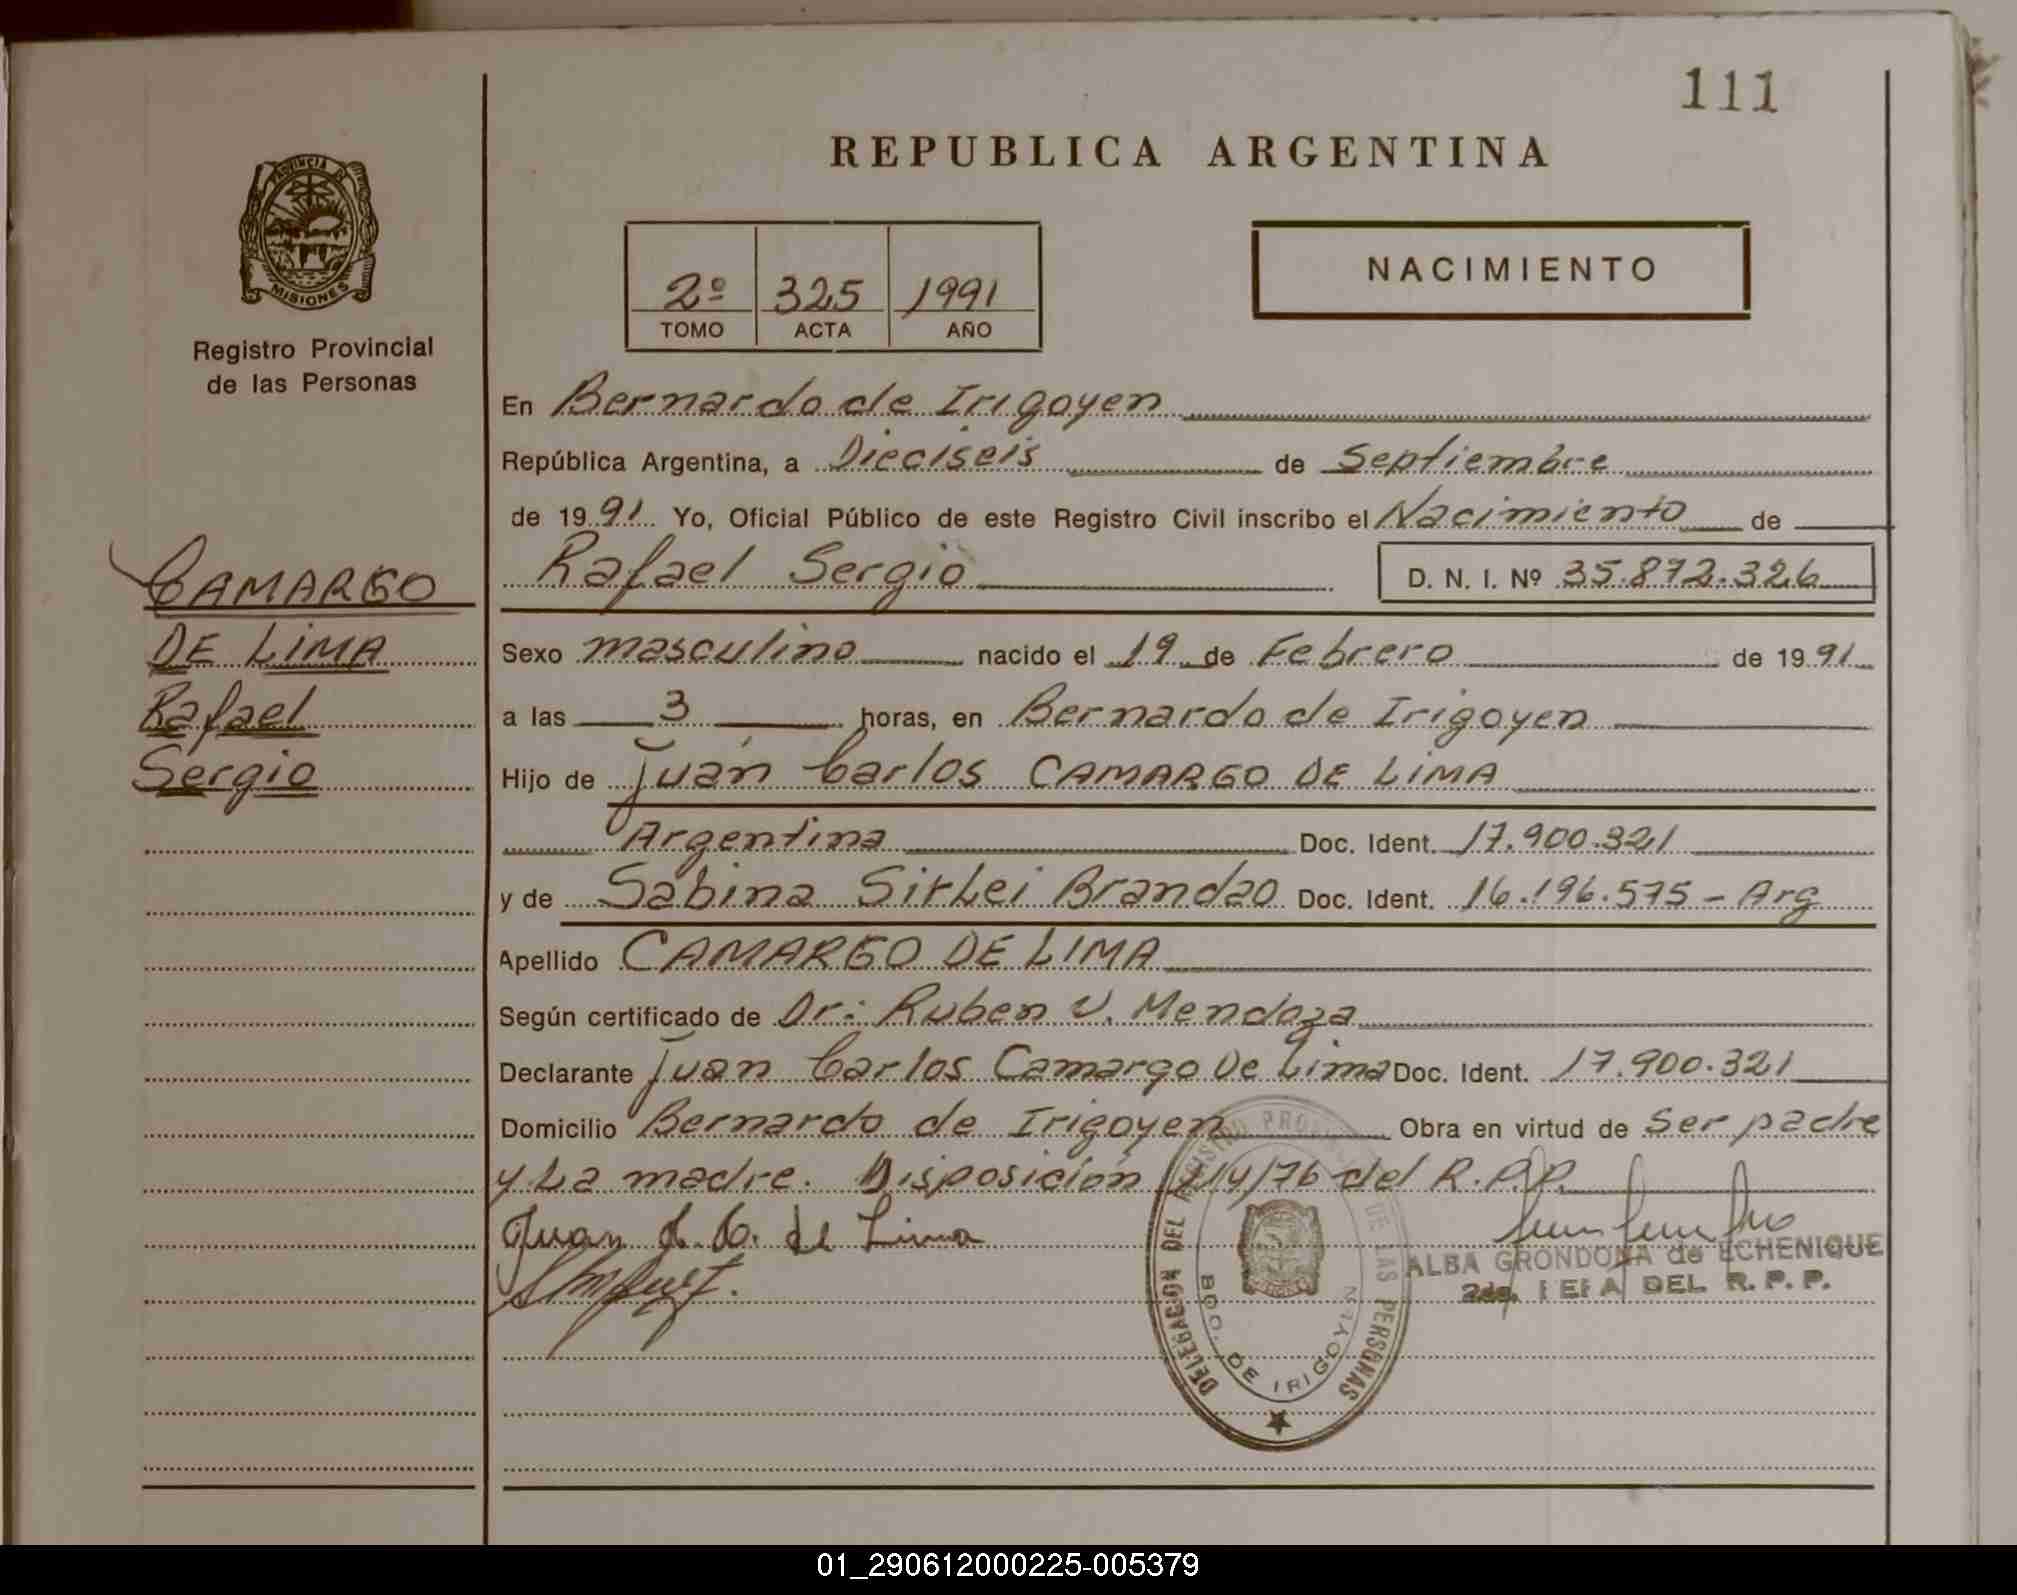 111
REPUBLICA ARGENTINA
PROVINCIA DE
MISIONES
Registro Provincial
de las Personas
2º 325 1991
TOMO ACTA AÑO
NACIMIENTO
En Bernardo de Irigoyen
República Argentina, a Dieciseis de Septiembre
de 1991 Yo, Oficial Público de este Registro Civil inscribo el Nacimiento de
Rafael Sergio D. N. I. Nº 35.872.326
CAMARGO
DE LIMA
Rafael
Sergio
Sexo masculino nacido el 19 de Febrero de 1991
a las 3 horas, en Bernardo de Irigoyen
Hijo de Juan Carlos CAMARGO DE LIMA
Argentina Doc. Ident. 17.900.321
y de Sabina Sirlei Brandao Doc. Ident. 16.196.575 - Arg
Apellido CAMARGO DE LIMA
Según certificado de Dr: Ruben V. Mendoza
Declarante Juan Carlos Camargo De Lima Doc. Ident. 17.900.321
Domicilio Bernardo de Irigoyen Obra en virtud de Ser padre
y La madre. Disposición 114/76 del R.P.P.
Juan C. C. de Lima
ALBA GRONDONA de ECHENIQUE
2da. JEFA DEL R. P. P.
DELEGACION DEL REGISTRO PROVINCIAL DE LAS PERSONAS
BDO. DE IRIGOYEN
01_290612000225-005379